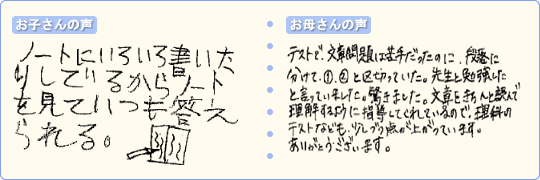 お子さんの声
ノートにいろいろ書いた
りしているからノート
を見ていつも答え
られる。
お母さんの声
テストで、文章問題は苦手だったのに、段落に
分けて、①、②と区切っていた。先生と勉強した
と言っていました。驚きました。文章をきちんと読んで
理解するように指導してくれているので、理科の
テストなども、少しづつ点が上がっています。
ありがとうございます。